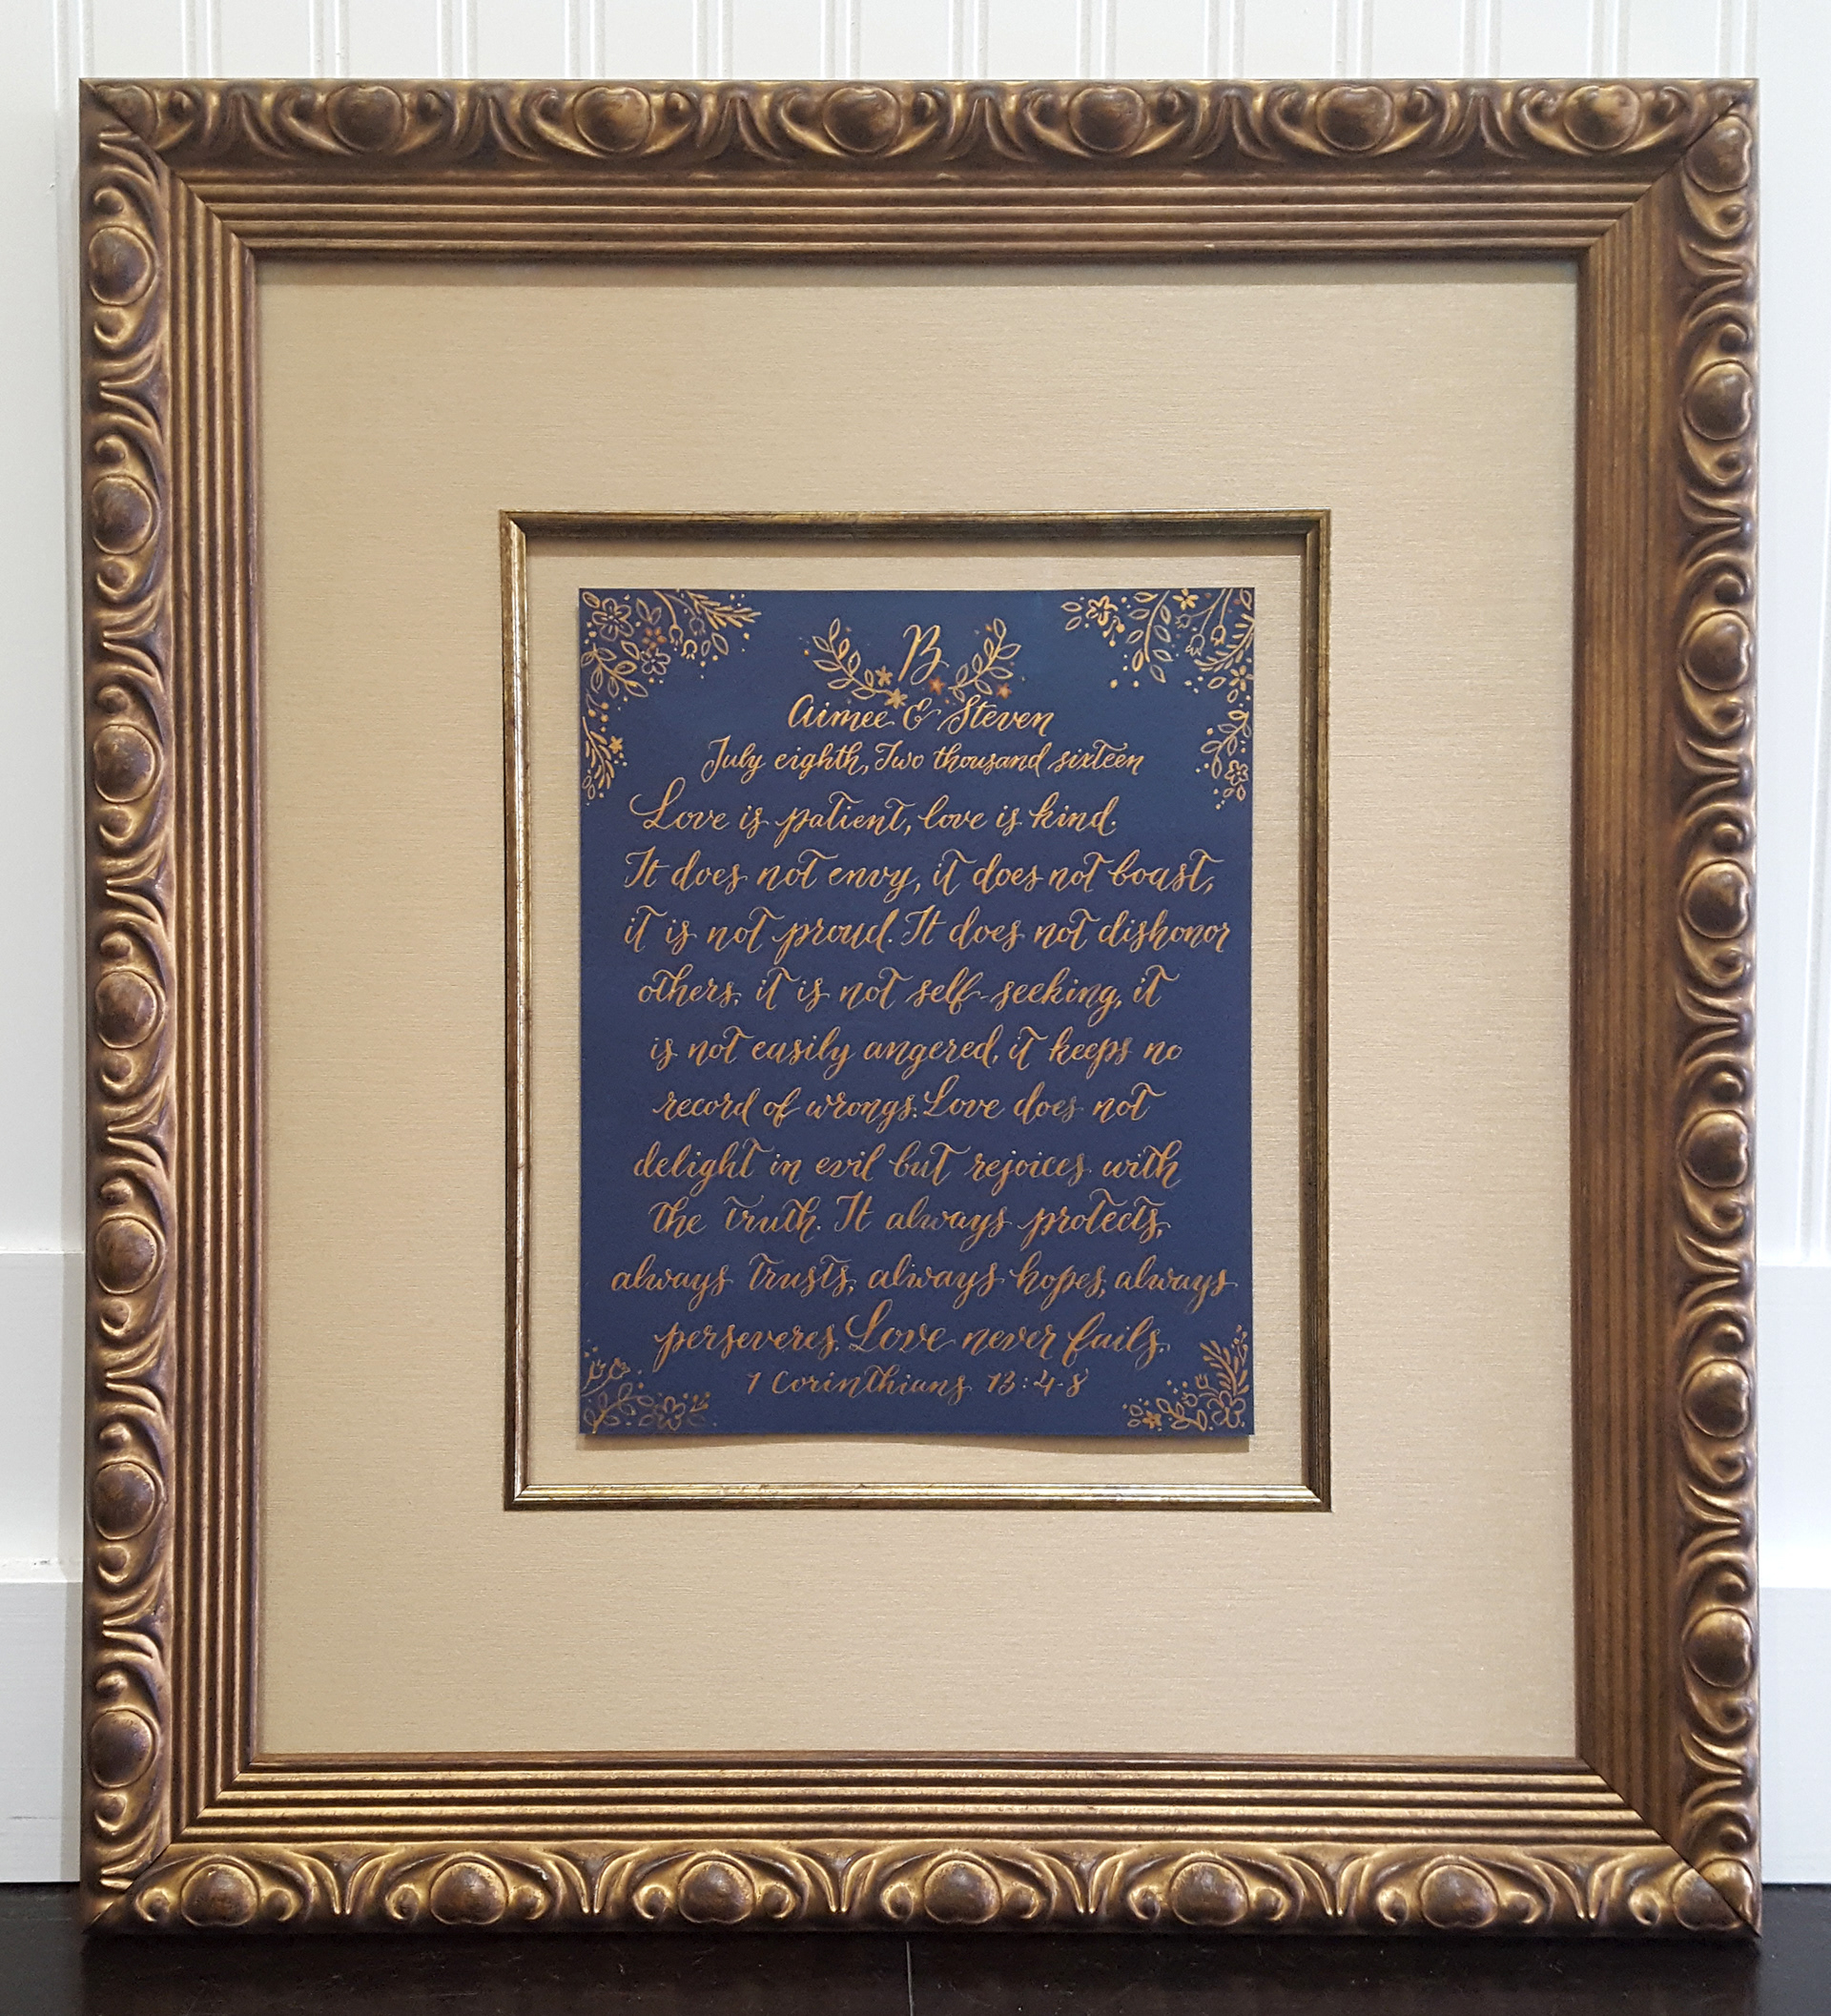 B
Aimee & Steven
July eighth, Two thousand sixteen
Love is patient, love is kind.
It does not envy, it does not boast,
it is not proud. It does not dishonor
others, it is not self-seeking, it
is not easily angered, it keeps no
record of wrongs. Love does not
delight in evil but rejoices with
the truth. It always protects,
always trusts, always hopes, always
perseveres. Love never fails.
1 Corinthians 13:4-8